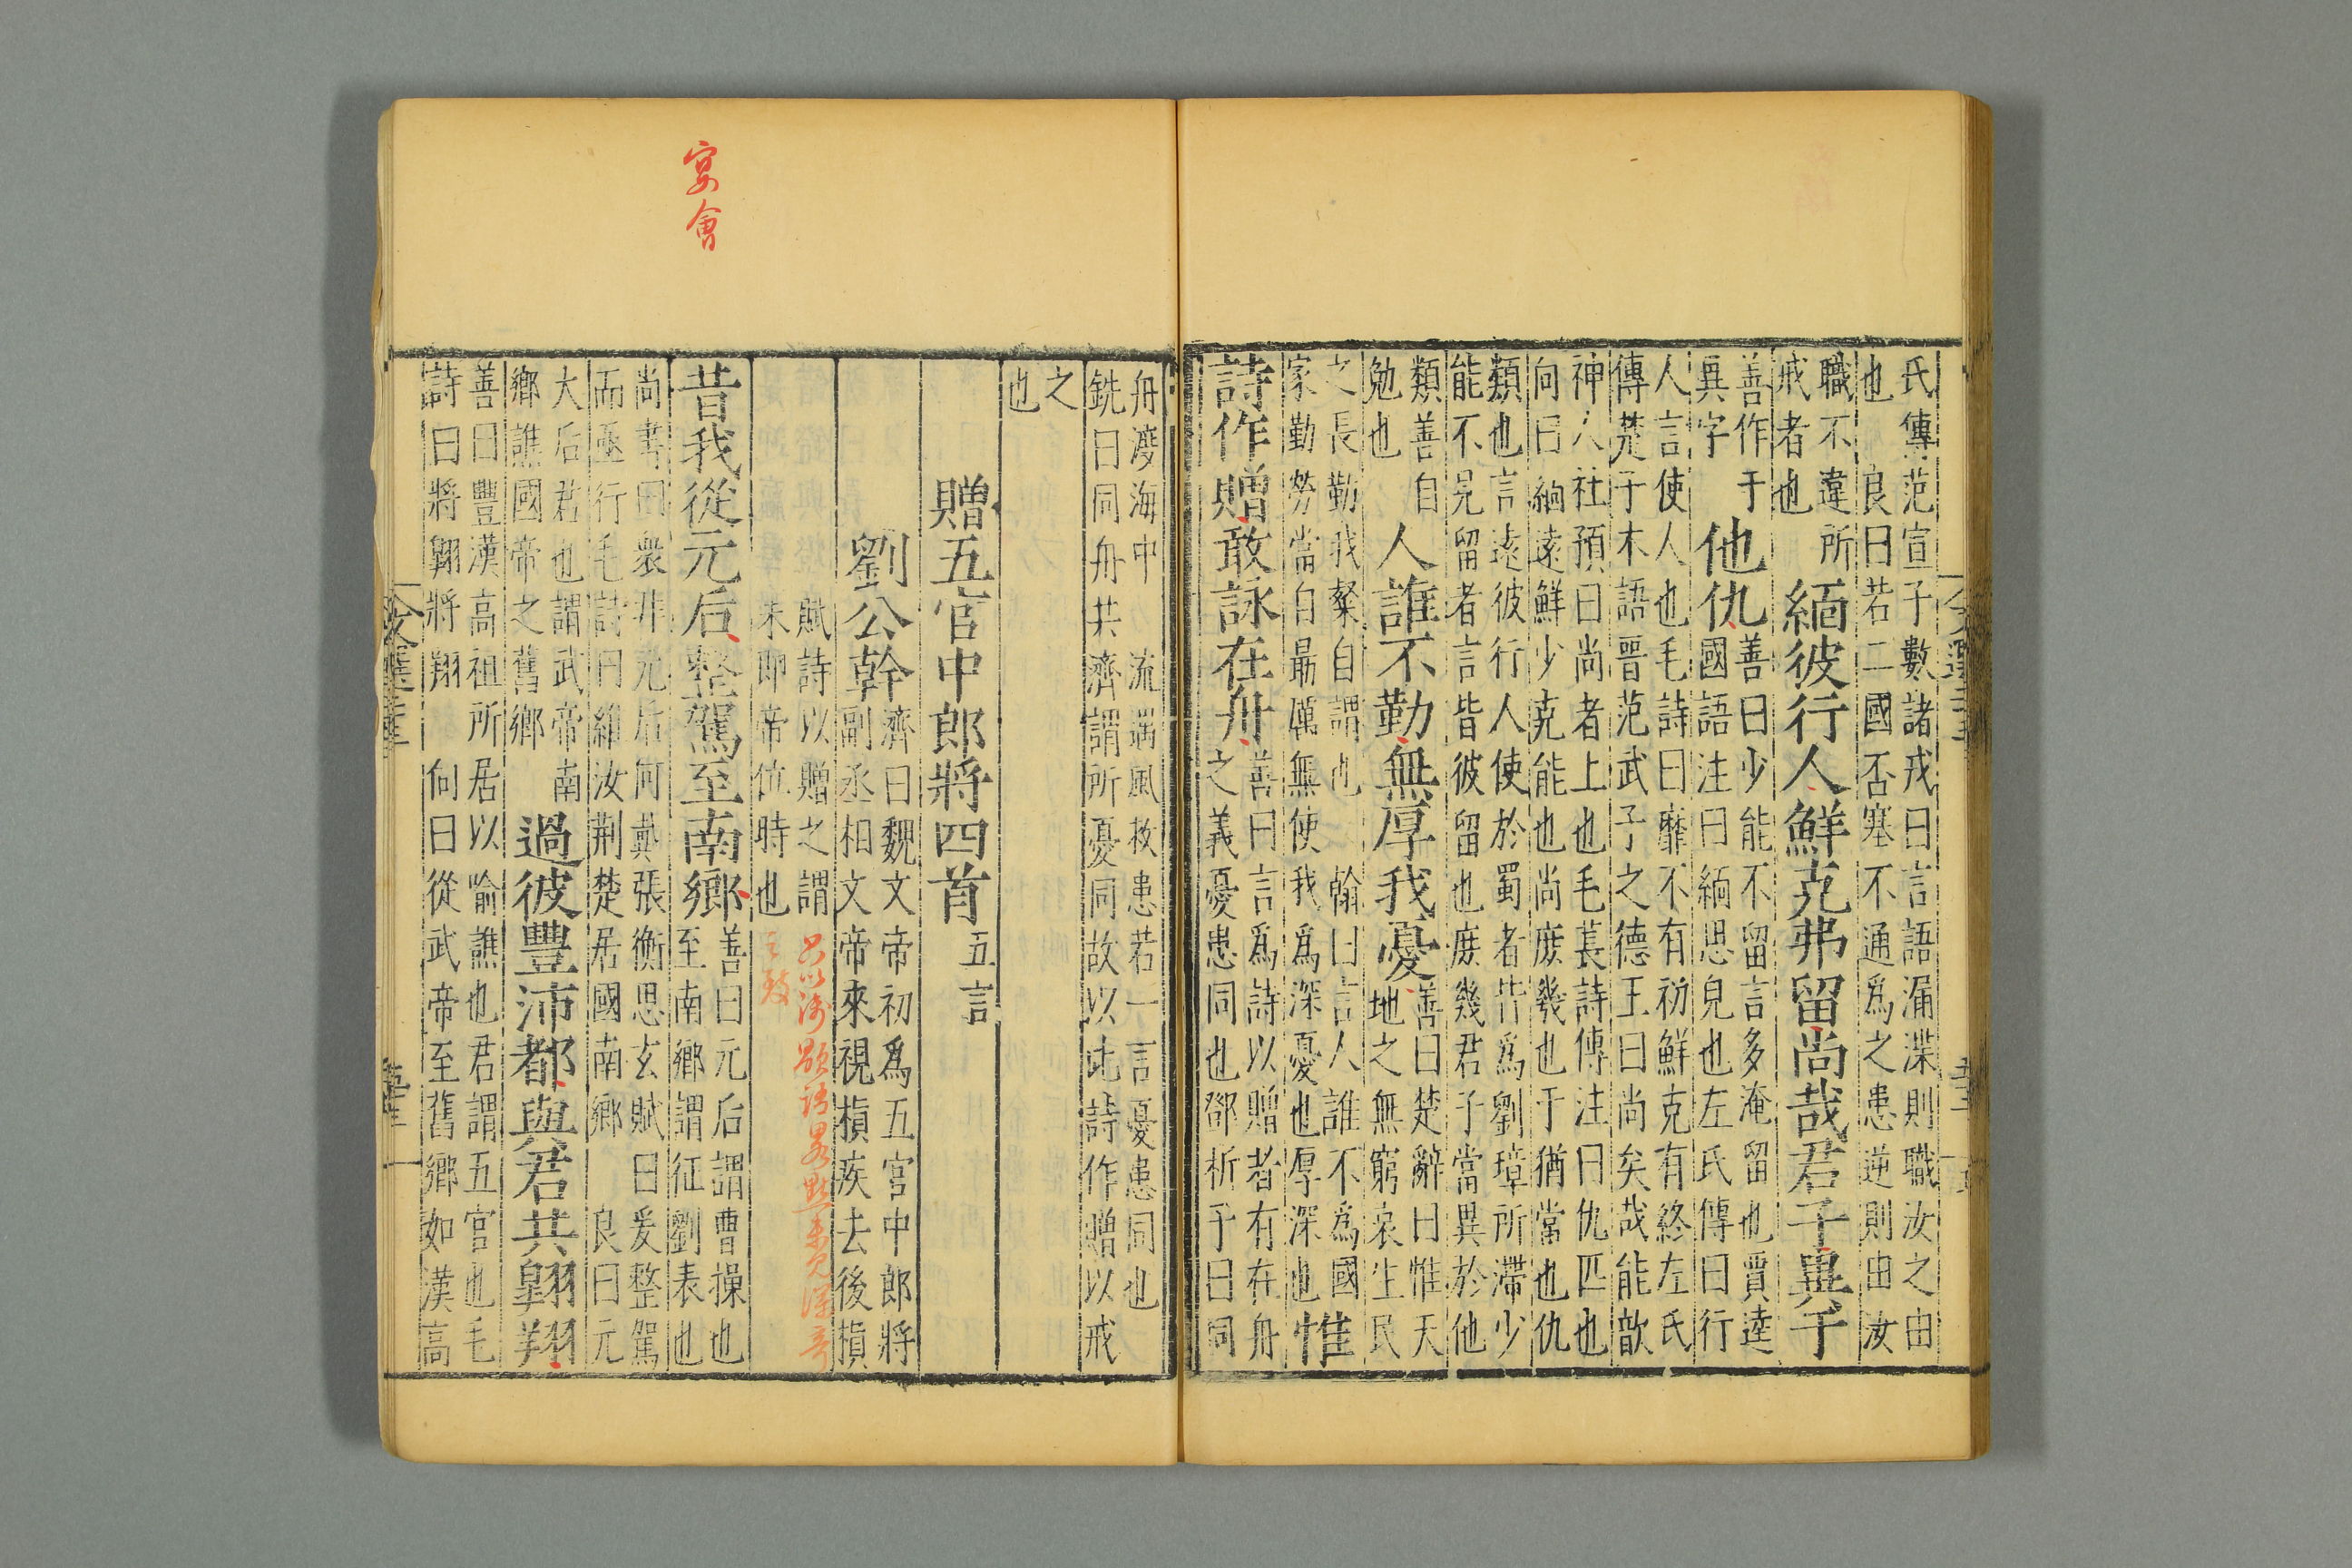 氏傳范宣子數諸戎曰言語漏渫則職汝之由
也　良曰若二國否塞不通爲之患逆則由汝
職不違所
戒者也
緬彼行人鮮克弗留尚哉君子異于
善作于
異字
他仇
善曰少能不留言多淹留也賈逵
國語注曰緬思皃也左氏傳曰行
人言使人也毛詩曰靡不有初鮮克有終左氏
傳楚子木語晉范武子之德王曰尚矣哉能歆
神人社預曰尚者上也毛萇詩傳注曰仇匹也
向曰緬遠鮮少克能也尚庶幾也于猶當也仇
類也言遠彼行人使於蜀者皆爲劉璋所滯少
能不見留者言皆彼留也庶幾君子當異於他
類善自
勉也
人誰不勤無厚我憂
善曰楚辭曰惟天
地之無窮哀生民
之長勤我粲自謂也　翰曰言人誰不爲國
家勤勞當自勗厲無使我爲深憂也厚深也
惟
詩作贈敢詠在舟
善曰言爲詩以贈者有在舟
之義憂患同也鄧析子曰同
舟渡海中流遇風救患若一言憂患同也
銑曰同舟共濟謂所憂同故以此詩作贈以戒
之
也
贈五官中郎將四首五言
劉公幹
濟曰魏文帝初爲五官中郎將
副丞相文帝來視楨疾去後楨
賦詩以贈之謂
未即帝位時也
昔我從元后整駕至南鄉
善曰元后謂曹操也
至南鄉謂征劉表也
尚書曰衆非元后何戴張衡思玄賦曰爰整駕
而亟行毛詩曰維汝荆楚居國南鄉　良曰元
大后君也謂武帝南
鄉譙國帝之舊鄉
過彼豐沛都與君共翱翔
善曰豐漢高祖所居以喻譙也君謂五官也毛
詩曰將翱將翔　向曰從武帝至舊鄉如漢高
宴會